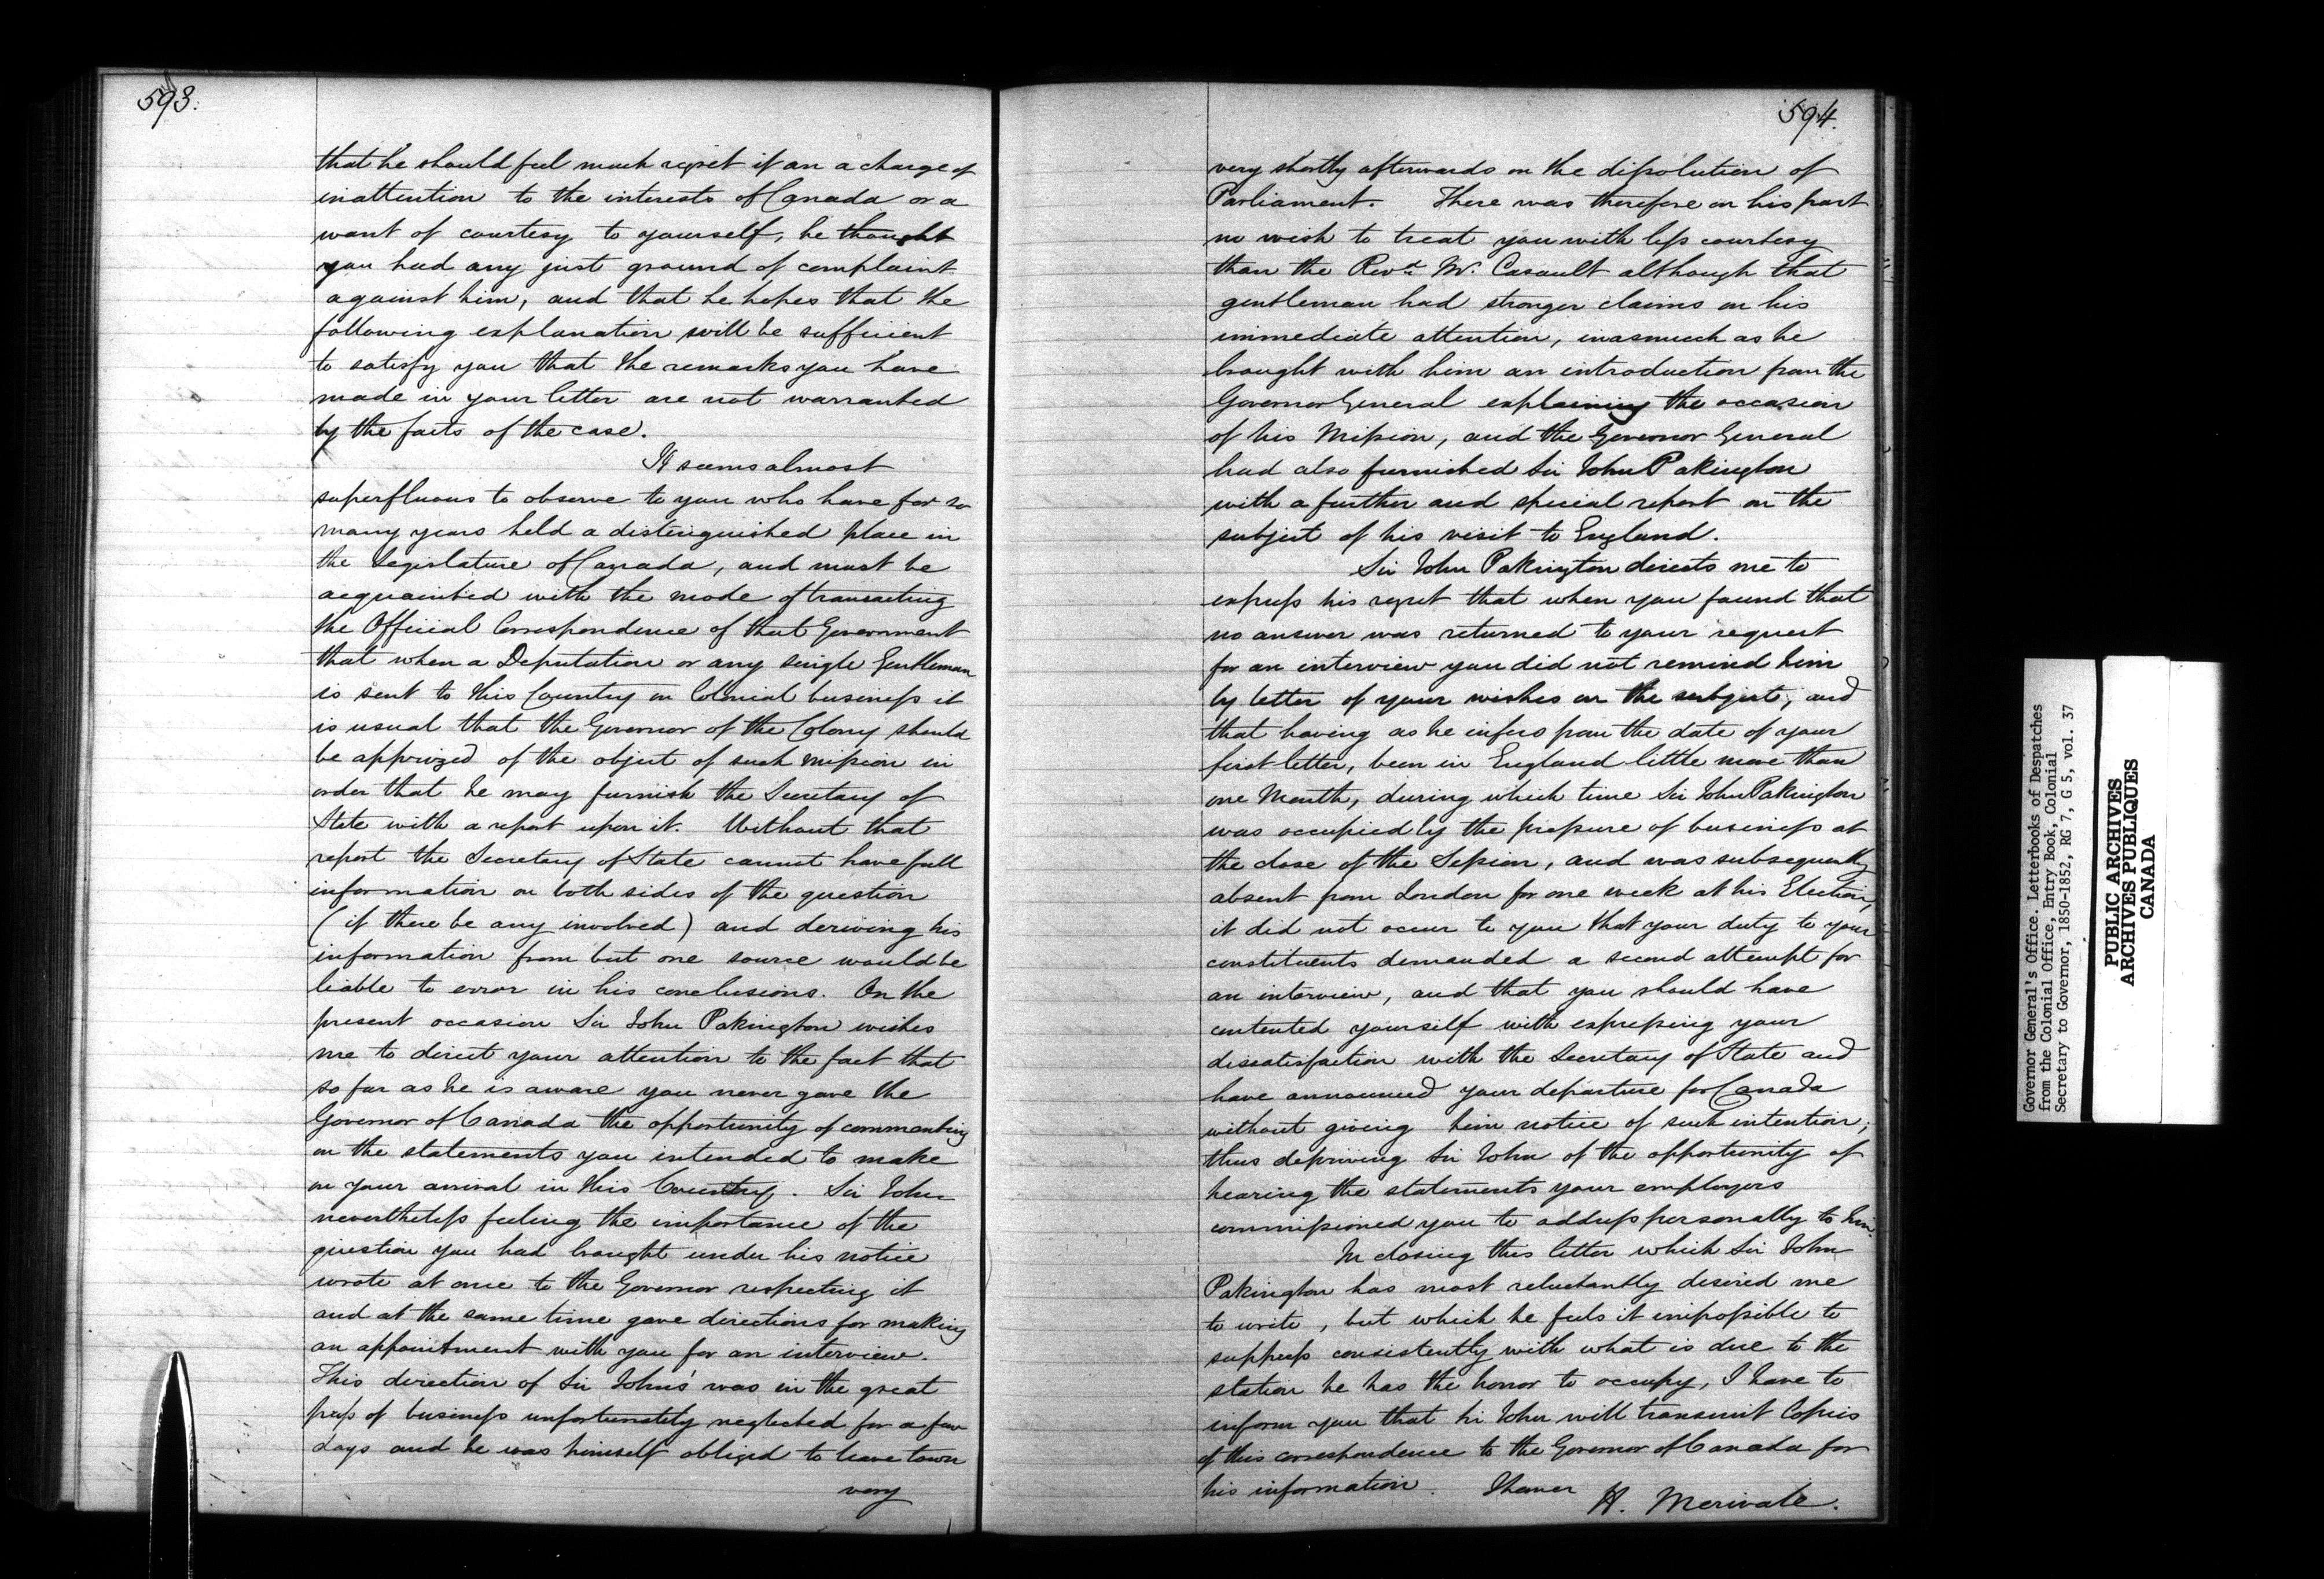 593.
that he should feel much regret if on a charge of
inattention to the interests of Canada or a
want of courtesy to yourself, he thought
you had any just ground of complaint
against him, and that he hopes that the
following explanation will be sufficient
to satisfy you that the remarks you have
made in your letter are not warranted
by the facts of the case.
It seems almost
superfluous to observe to you who have for so
many years held a distinguished place in
the Legislature of Canada, and must be
acquainted with the mode of transacting
the Official Correspondence of that Government
that when a Deputation or any single Gentleman
is sent to this Country on Colonial business it
is usual that the Governor of the Colony should
be apprized of the object of such mission in
order that he may furnish the Secretary of
State with a report upon it. Without that
report the Secretary of State cannot have full
information on both sides of the question
(if there be any involved) and deriving his
information from but one source would be
liable to error in his conclusions. On the
present occasion Sir John Pakington wishes
me to direct your attention to the fact that
so far as he is aware you never gave the
Governor of Canada the opportunity of commenting
on the statements you intended to make
on your arrival in this Country. Sir John
nevertheless feeling the importance of the
question you had brought under his notice
wrote at once to the Governor respecting it
and at the same time gave directions for making
an appointment with you for an interview.
This direction of Sir John's was in the great
press of business unfortunately neglected for a few
days and he was himself obliged to leave town
very
594.
very shortly afterwards on the dissolution of
Parliament. There was therefore on his part
no wish to treat you with less courtesy
than the Revd. Mr. Casault although that
gentleman had stronger claims on his
immediate attention, inasmuch as he
brought with him an introduction from the
Governor General explaining the occasion
of his Mission, and the Governor General
had also furnished Sir John Pakington
with a further and special report on the
subject of his visit to England.
Sir John Pakington directs me to
express his regret that when you found that
no answer was returned to your request
for an interview you did not remind him
by letter of your wishes on the subject, and
that having as he infers from the date of your
first letter, been in England little more than
one Month, during which time Sir John Pakington
was occupied by the pressure of business at
the close of the Session, and was subsequently
absent from London for one week at his Election,
it did not occur to you that your duty to your
constituents demanded a second attempt for
an interview, and that you should have
contented yourself with expressing your
dissatisfaction with the Secretary of State and
have announced your departure for Canada
without giving him notice of such intention;
thus depriving Sir John of the opportunity of
hearing the statements your employers
commissioned you to address personally to him.
In closing this letter which Sir John
Pakington has most reluctantly desired me
to write, but which he feels it impossible to
suppress consistently with what is due to the
station he has the honor to occupy, I have to
inform you that Sir John will transmit Copies
of this correspondence to the Governor of Canada for
his information. I have
H. Merivale.
Governor General's Office. Letterbooks of Despatches
from the Colonial Office, Entry Book, Colonial
Secretary to Governor, 1850-1852, RG 7, G 5, vol. 37
PUBLIC ARCHIVES
ARCHIVES PUBLIQUES
CANADA